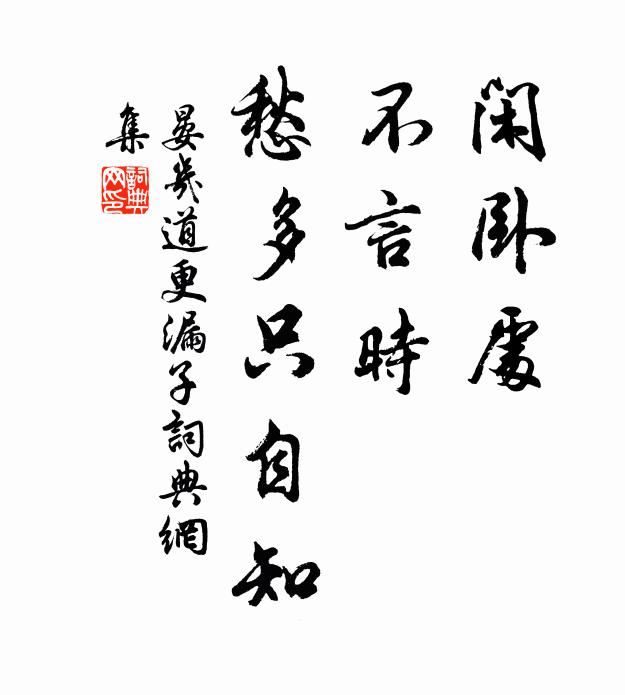 閑卧處
不言時
愁多只自知
晏幾道更漏子詞典網
集
詞典
网印